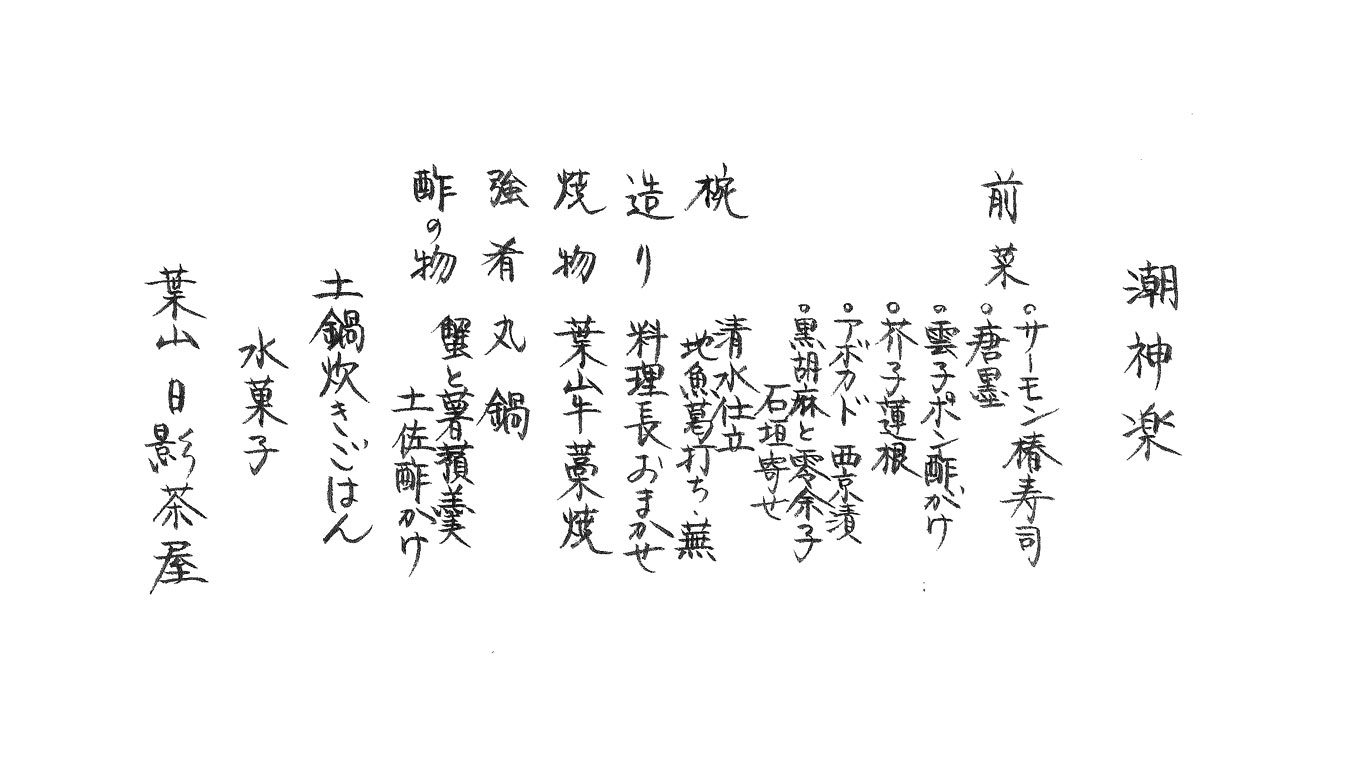 潮神楽
前菜
○サーモン椿寿司
○唐墨
○雲子ポン酢がけ
○芥子蓮根
○アボカド 西京漬
○黒胡麻と零余子
石垣寄せ
椀
清水仕立
地魚葛打ち、蕪
造り 料理長おまかせ
焼物 葉山牛藁焼
強肴 丸鍋
酢の物 蟹と薯蕷羹
土佐酢がけ
土鍋炊きごはん
水菓子
葉山 日影茶屋